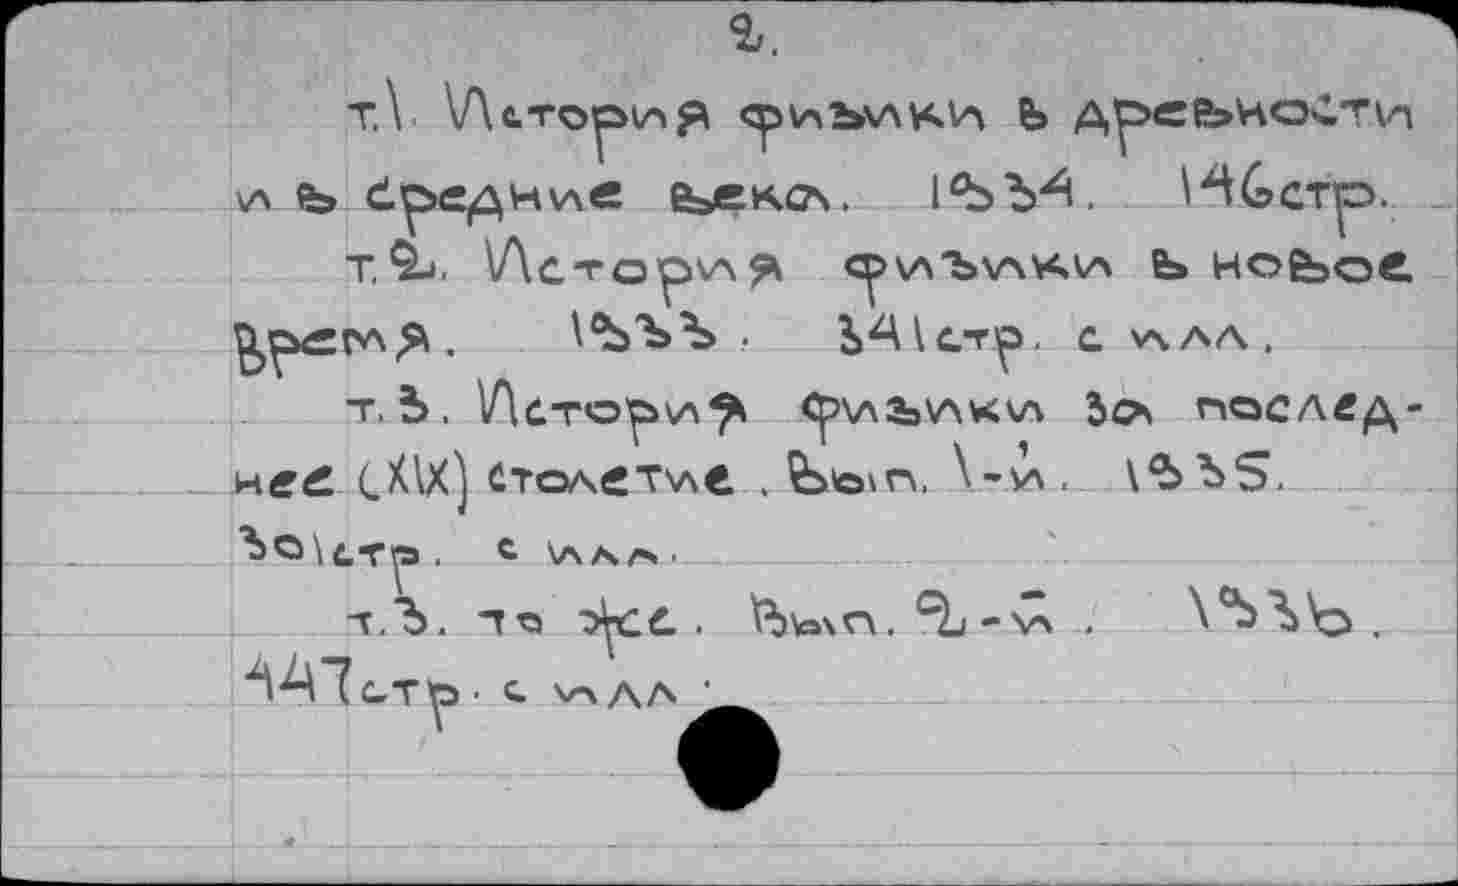 2.
т.1. История физики в древности
и в средние века. 1934. 146стр.
т.2. История физики в новое
время. 1933. 341стр. с илл.
т.3. История физики за послед-
нее (XIX) столетие. Вып. 1-й. 1935.
301стр. с илл.
т.3. то же. Вып. 2-й. 1936.
447стр. с илл.